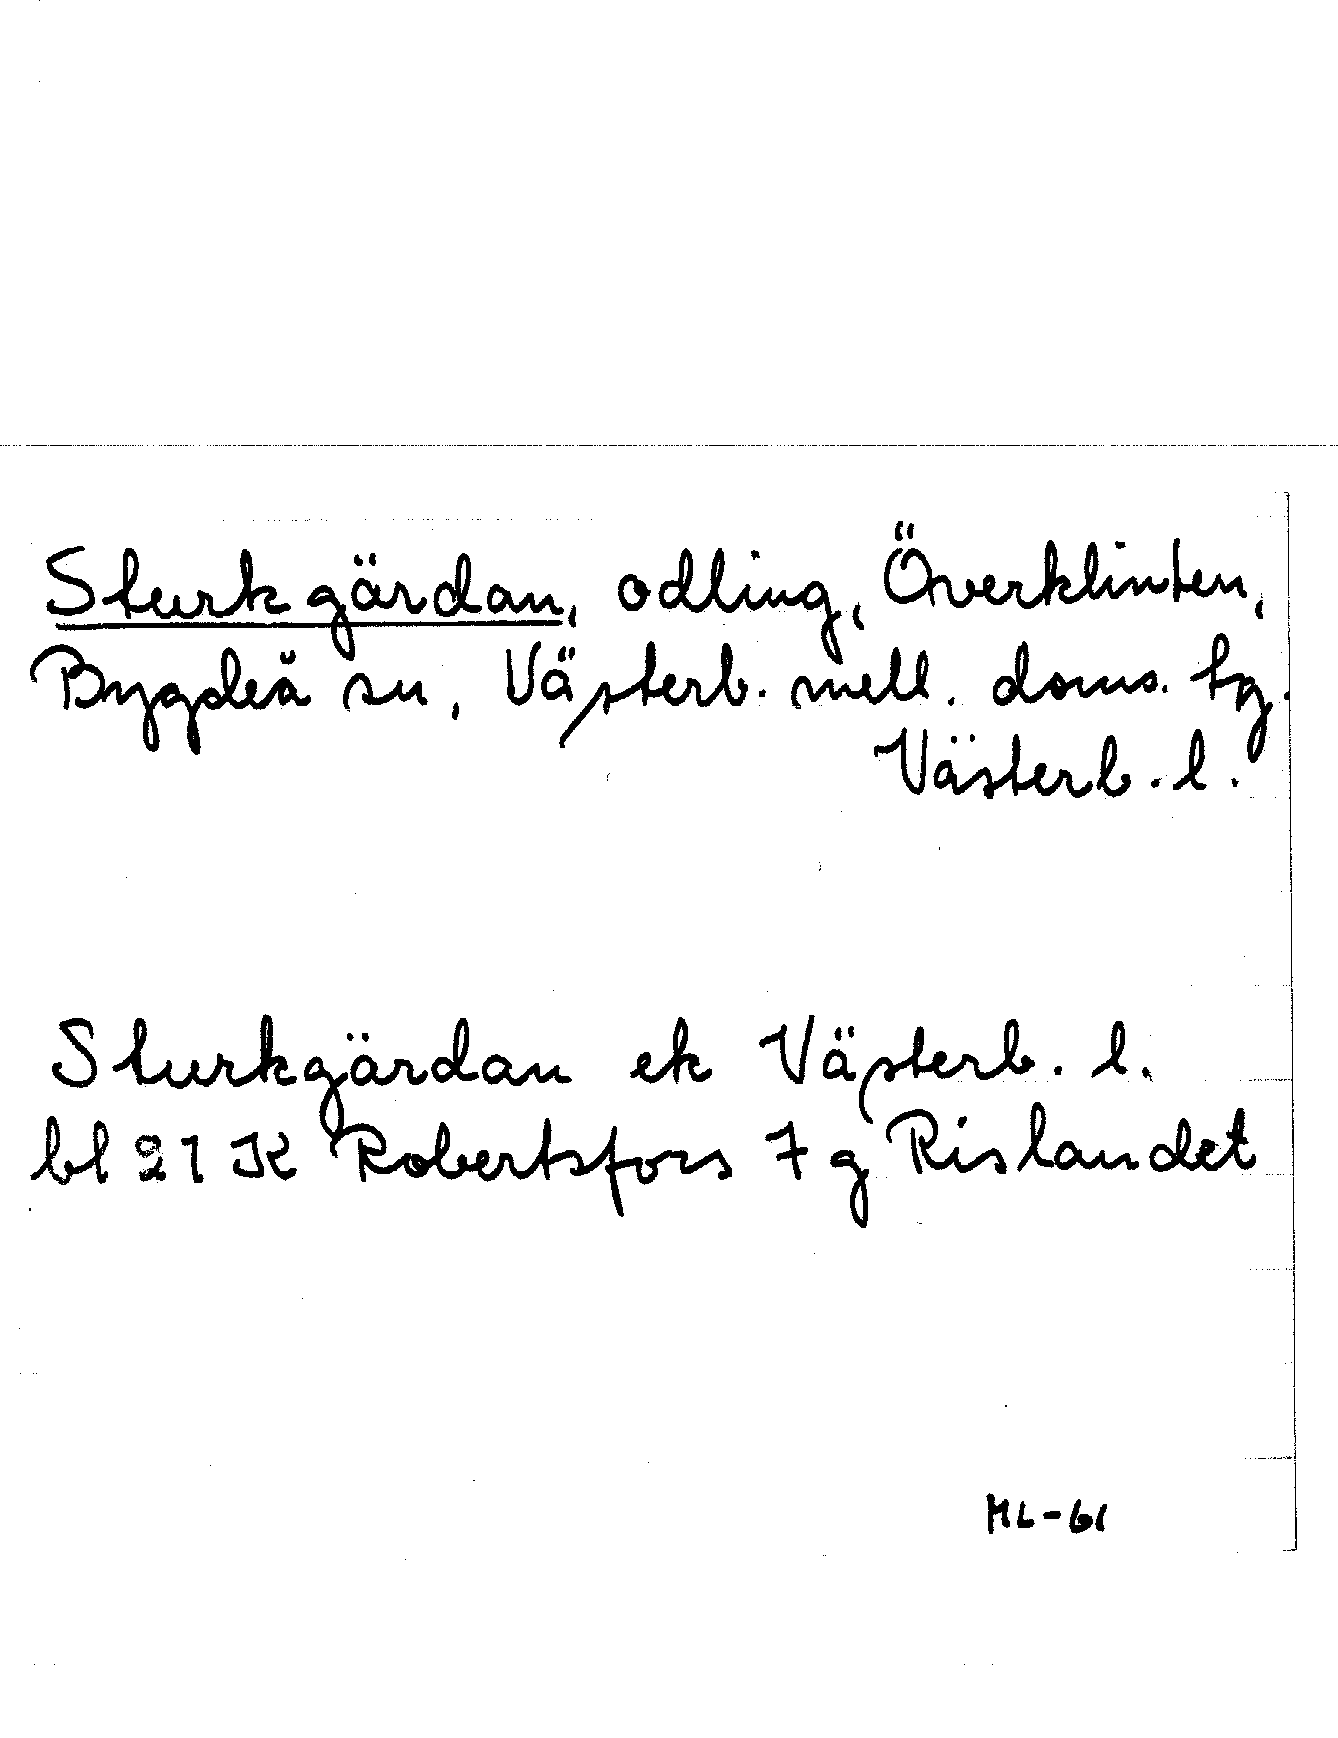 Sturkgärdan, odling, Överklinten,
Bygdeå sn, Västerb. mell. doms. tg.
Västerb. l.
Sturkgärdan ek Västerb. l.
bl 21 K Robertsfors 7 g Rislandet
ML-61